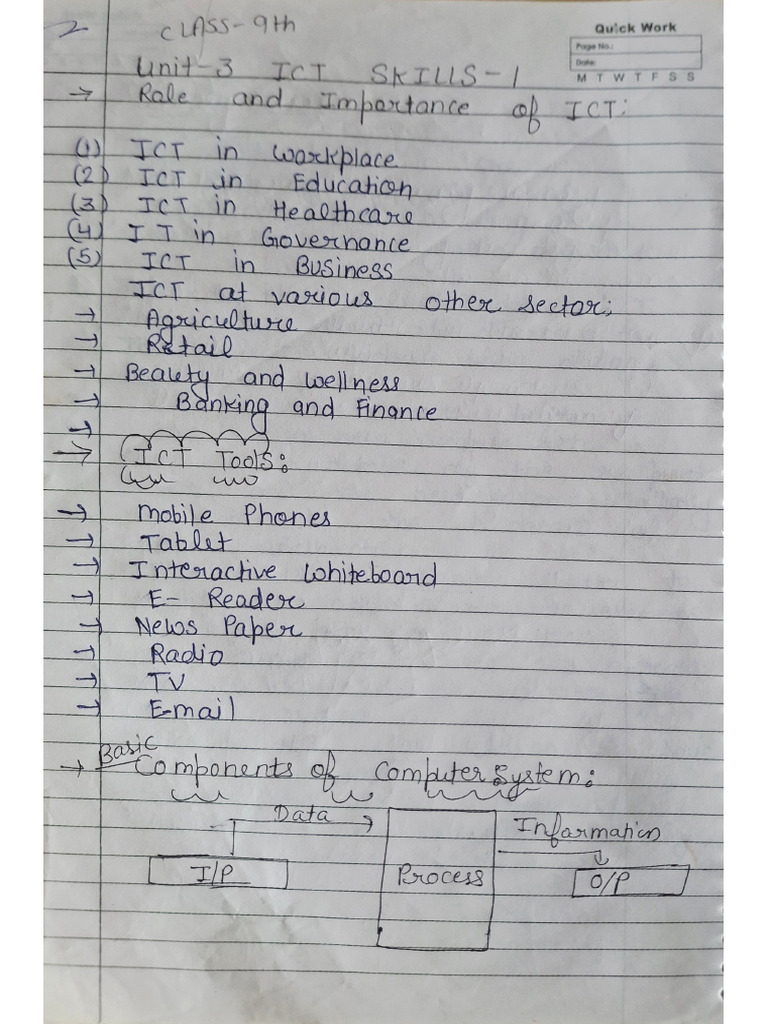 2
CLASS-9th
Quick Work
Page No.:
Date:
M T W T F S S
Unit-3 ICT SKILLS-1
→ Role and Importance of ICT:
(1) ICT in Workplace
(2) ICT in Education
(3) ICT in Healthcare
(4) I T in Governance
(5) ICT in Business
ICT at various other sector;
→ Agriculture
→ Retail
→ Beauty and wellness
→ Banking and Finance
→
→ ICT Tools:
→ Mobile Phones
→ Tablet
→ Interactive Whiteboard
→ E- Reader
→ News Paper
→ Radio
→ TV
→ E-mail
→ Basic Components of Computer System:
Data
Information
I/P
Process
O/P